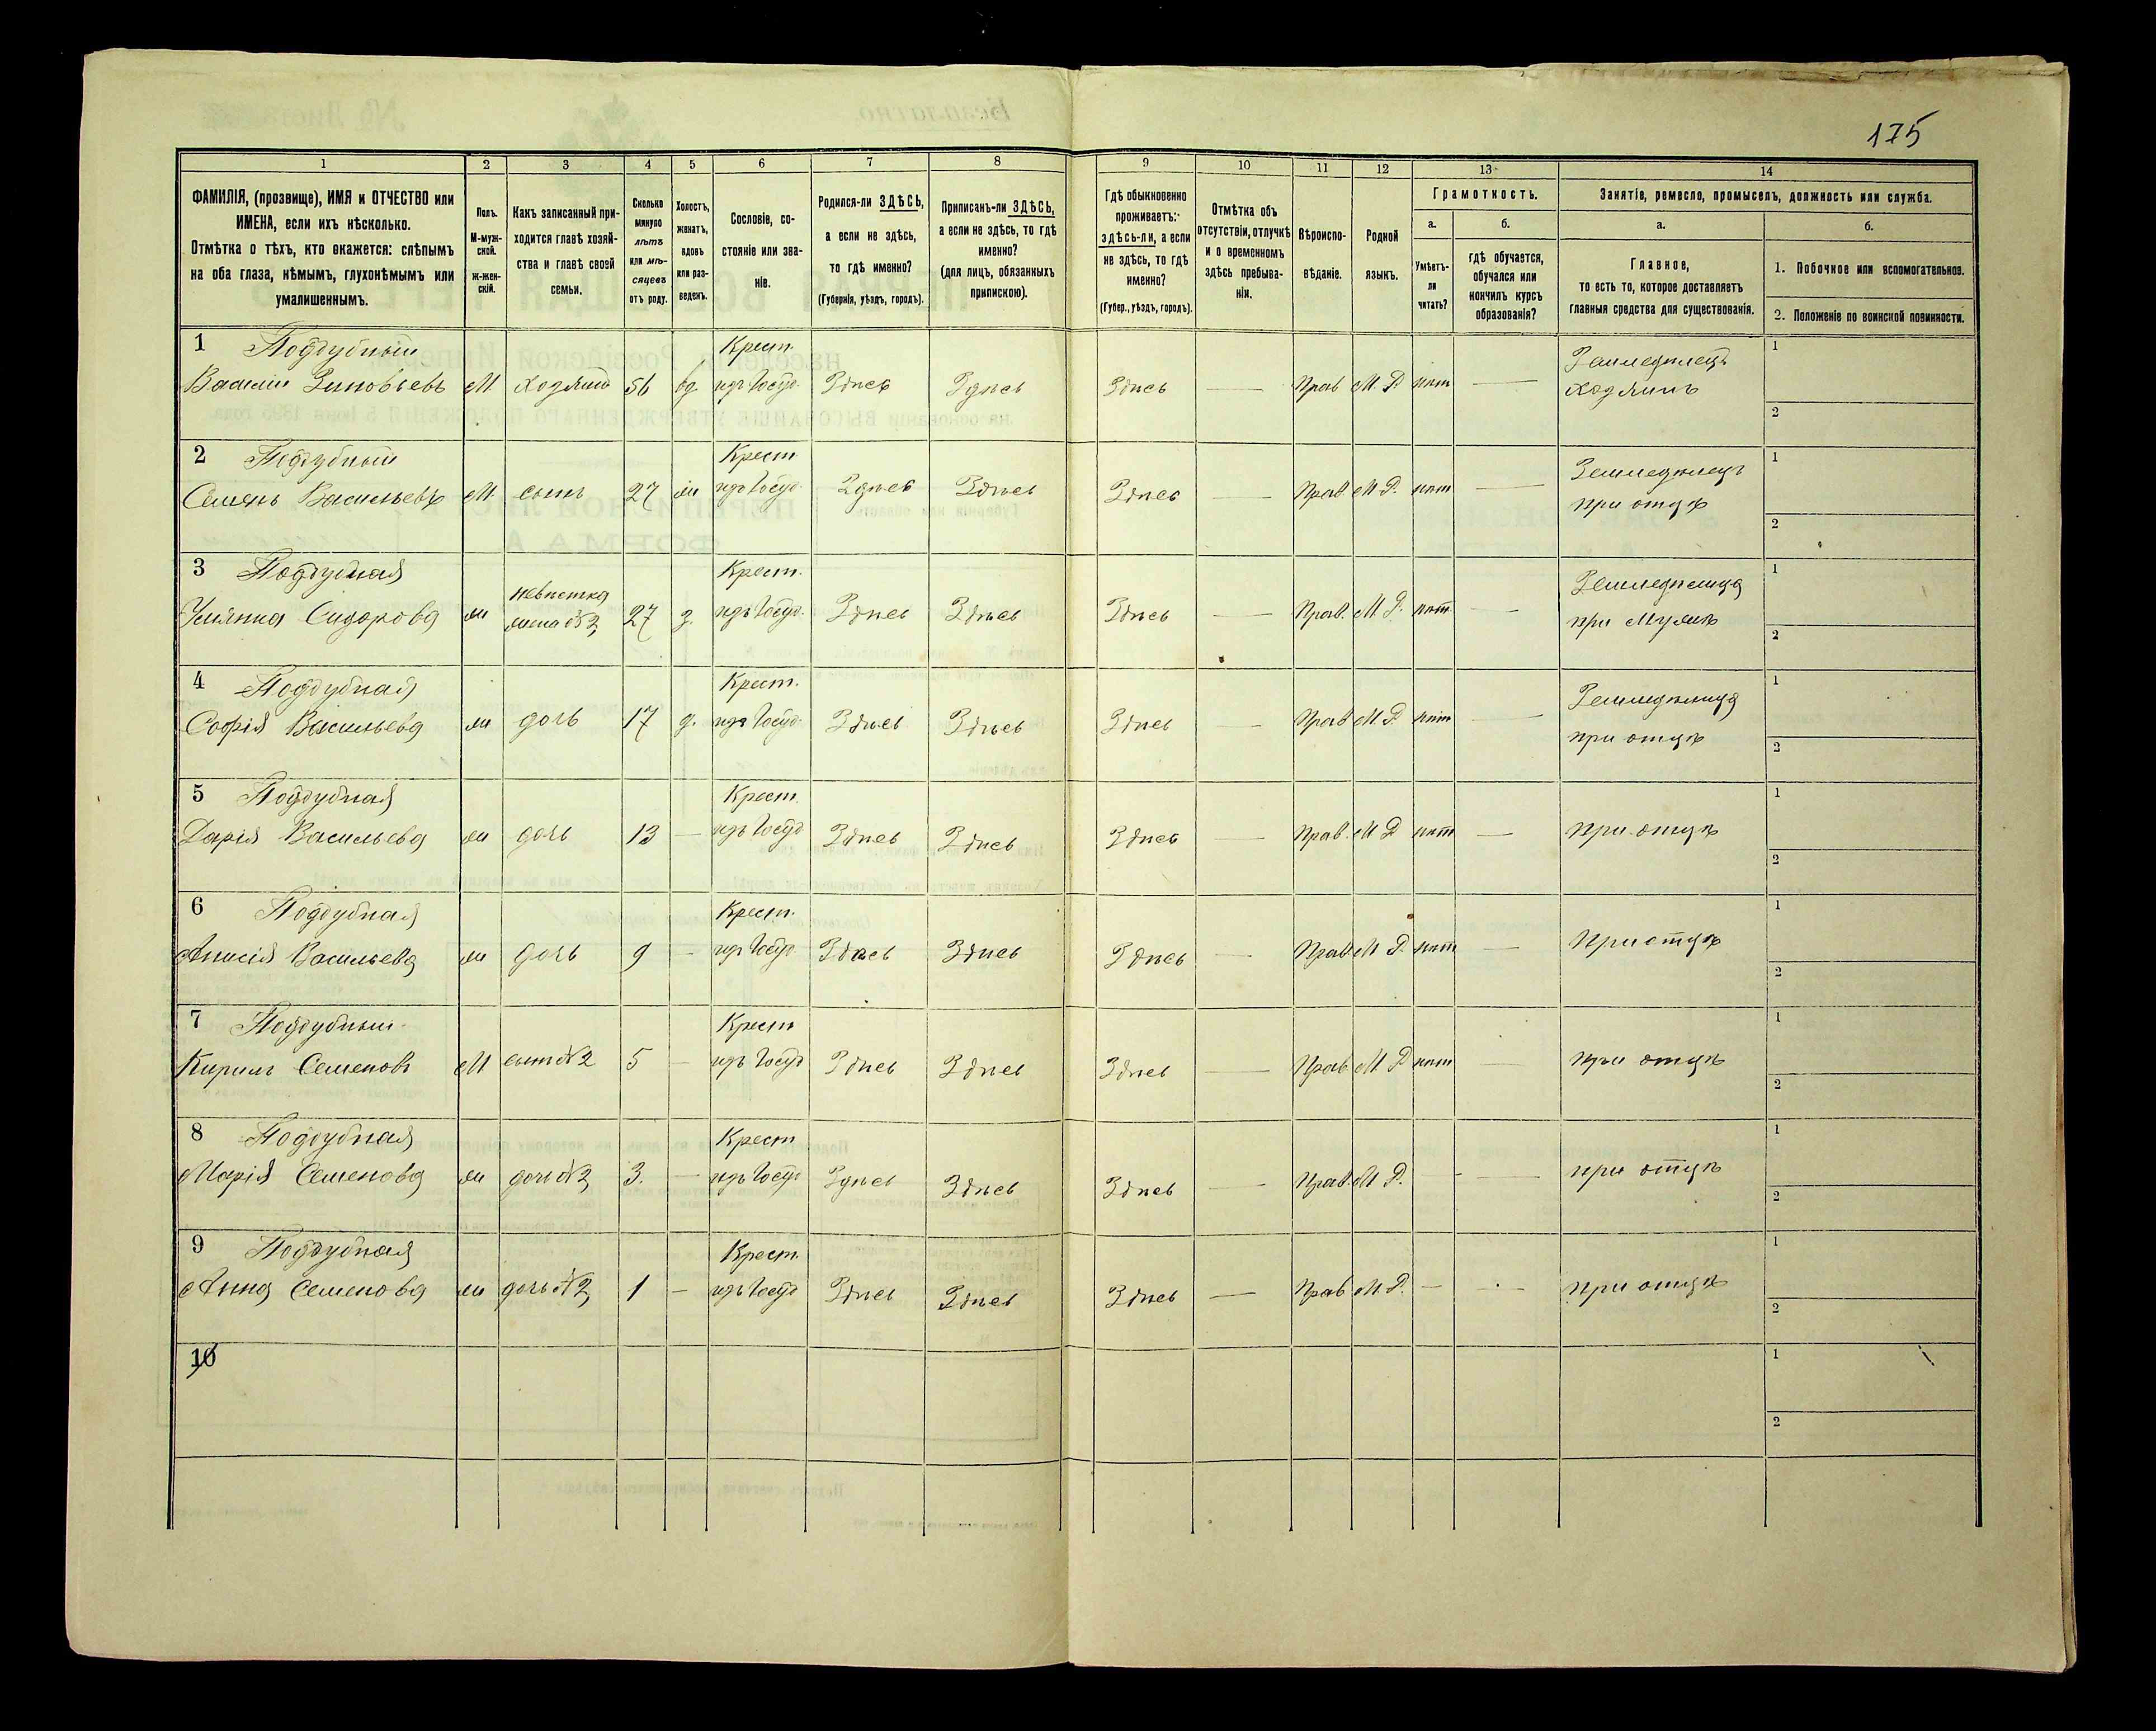 175
1 2 3 4 5 6 7 8 9 10 11 12 13 14
ФАМИЛІЯ, (прозвище), ИМЯ и ОТЧЕСТВО или
ИМЕНА, если ихъ нѣсколько.
Отмѣтка о тѣхъ, кто окажется: слѣпымъ
на оба глаза, нѣмымъ, глухонѣмымъ или
умалишеннымъ.
Полъ.
М-муж-
ской.
ж-жен-
скій.
Какъ записанный при-
ходится главѣ хозяй-
ства и главѣ своей
семьи.
Сколько
минуло
лѣтъ
или мѣ-
сяцевъ
отъ роду.
Холостъ,
женатъ,
вдовъ
или раз-
веденъ.
Сословіе, со-
стояніе или зва-
ніе.
Родился-ли ЗДѢСЬ,
а если не здѣсь,
то гдѣ именно?
(Губернія, уѣздъ, городъ).
Приписанъ-ли ЗДѢСЬ,
а если не здѣсь, то гдѣ
именно?
(для лицъ, обязанныхъ
припискою).
Гдѣ обыкновенно
проживаетъ:
здѣсь-ли, а если
не здѣсь, то гдѣ
именно?
(Губер., уѣздъ, городъ).
Отмѣтка объ
отсутствіи, отлучкѣ
и о временномъ
здѣсь пребыва-
ніи.
Вѣроиспо-
вѣданіе.
Родной
языкъ.
Грамотность.
а.
Умѣетъ-
ли
читать?
б.
гдѣ обучается,
обучался или
кончилъ курсъ
образованія?
Занятіе, ремесло, промыселъ, должность или служба.
а.
Главное,
то есть то, которое доставляетъ
главныя средства для существованія.
б.
1. Побочное или вспомогательное.
2. Положеніе по воинской повинности.
1 Поддубный Крест. Земледѣлецъ 1
Василій Зиновьевъ М хозяинъ 56 вд изъ Госуд. Здѣсь Здѣсь Здѣсь — Прав М Р. нѣт — хозяинъ
2
2 Поддубный Крест Земледѣлецъ 1
Семенъ Васильевъ М. сынъ 27 ж изъ Госуд. Здѣсь Здѣсь Здѣсь — Прав. М Р. нѣт — при отцѣ
2
3 Поддубная Крест. Земледѣлица 1
невѣстка
Сидорова ж жена №2 27 з. изъ Госуд. Здѣсь Здѣсь Здѣсь — Прав. М Р. нѣт — при мужѣ
2
4 Поддубная Крест. Земледѣлица 1
Софія Васильева ж дочь 17 д. изъ Госуд. Здѣсь Здѣсь Здѣсь — Прав М Р. нѣт — при отцѣ
2
5 Поддубная Крест. 1
Дарія Васильева ж дочь 13 — изъ Госуд Здѣсь Здѣсь Здѣсь — Прав. М Р нѣт — при отцѣ
2
6 Поддубная Крест. 1
Анисія Васильева ж дочь 9 — изъ Госуд Здѣсь Здѣсь Здѣсь — Прав М Р. нѣт — при отцѣ
2
7 Поддубный Крест 1
Кирилъ Семеновъ М сынъ №2 5 — изъ Госуд Здѣсь Здѣсь Здѣсь — Прав М Р нѣт — при отцѣ
2
8 Поддубная Крест 1
Марія Семенова ж дочь №2 3. — изъ Госуд Здѣсь Здѣсь Здѣсь — Прав. М Р. — — при отцѣ
2
9 Поддубная Крест. 1
Анна Семенова ж дочь №2 1 — изъ Госуд Здѣсь Здѣсь Здѣсь — Прав М. Р. — — при отцѣ
2
10 1
2